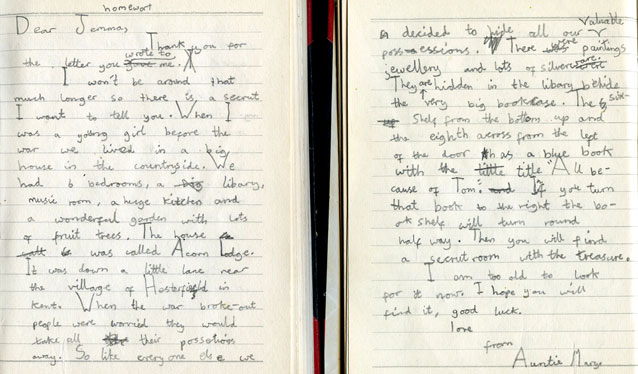 homewort
Dear Jemma,
Thank you for
the letter you gave wrote to me.
I won't be around that
much longer so there is a secret
I want to tell you. When I
was a young girl before the
war we lived in a big
house in the countryside. We
had 6 bedrooms, a big libary,
music room, a huge kitchen and
a wonderful garden with lots
of fruit trees. The house
was called Acorn Lodge.
It was down a little lane near
the village of in
Kent. When the war broke-out
people were worried they would
take all their possotions
away. So like everyone else we
decided to hide all our valuable
possessions. There was were paintings
jewellery and lots of silverware.
They are hidden in the libary behide
the very big bookcase. The six-
Shelf from the bottom up and
the eighth across from the left
of the door has a blue book
with the little title "All be-
cause of Tom". and If you turn
that book to the right the bo-
ok shelf will turn round
half way. Then you will find
a secret room with the treasure.
I am too old to look
for it now. I hope you will
find it, good luck.
love
from
Auntie Marge